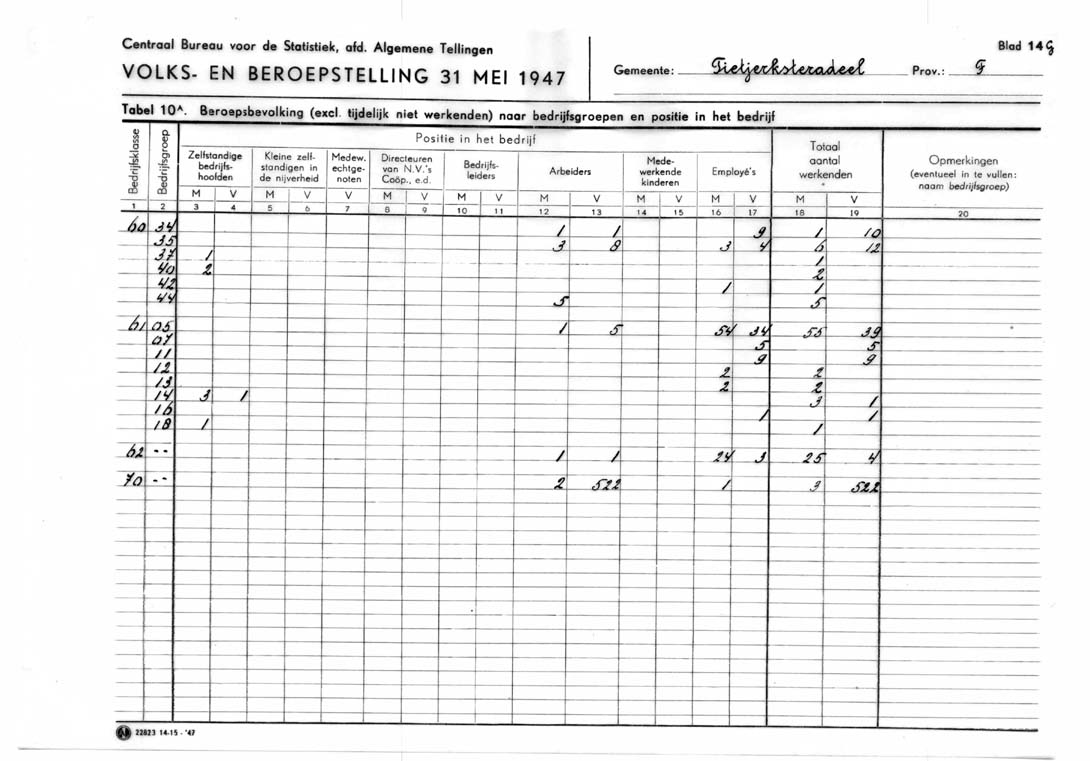 Centraal Bureau voor de Statistiek, afd. Algemene Tellingen
Blad 14G
VOLKS- EN BEROEPSTELLING 31 MEI 1947
Gemeente: Tietjerksteradeel Prov.: F
Tabel 10A. Beroepsbevolking (excl. tijdelijk niet werkenden) naar bedrijfsgroepen en positie in het bedrijf
Bedrijfsklasse Bedrijfsgroep Positie in het bedrijf Totaal aantal werkenden Opmerkingen (eventueel in te vullen: naam bedrijfsgroep)
Zelfstandige bedrijfs-hoofden Kleine zelf-standigen in de nijverheid Medew. echtge-noten Directeuren van N.V.'s Coöp., e.d. Bedrijfs-leiders Arbeiders Mede-werkende kinderen Employé's
M V M V V M V M V M V M V M V M V
1 2 3 4 5 6 7 8 9 10 11 12 13 14 15 16 17 18 19 20
60 34 1 1 9 1 10
35 3 8 3 4 6 12
37 1 1
40 2 2
42 1 1
44 5 5
61 05 1 5 54 34 55 39
07 5 5
11 9 9
12 2 2
13 2 2
14 3 1 3 1
16 1 1
18 1 1
62 -- 1 1 24 3 25 4
70 -- 2 522 1 3 522
22823 14-15 - '47